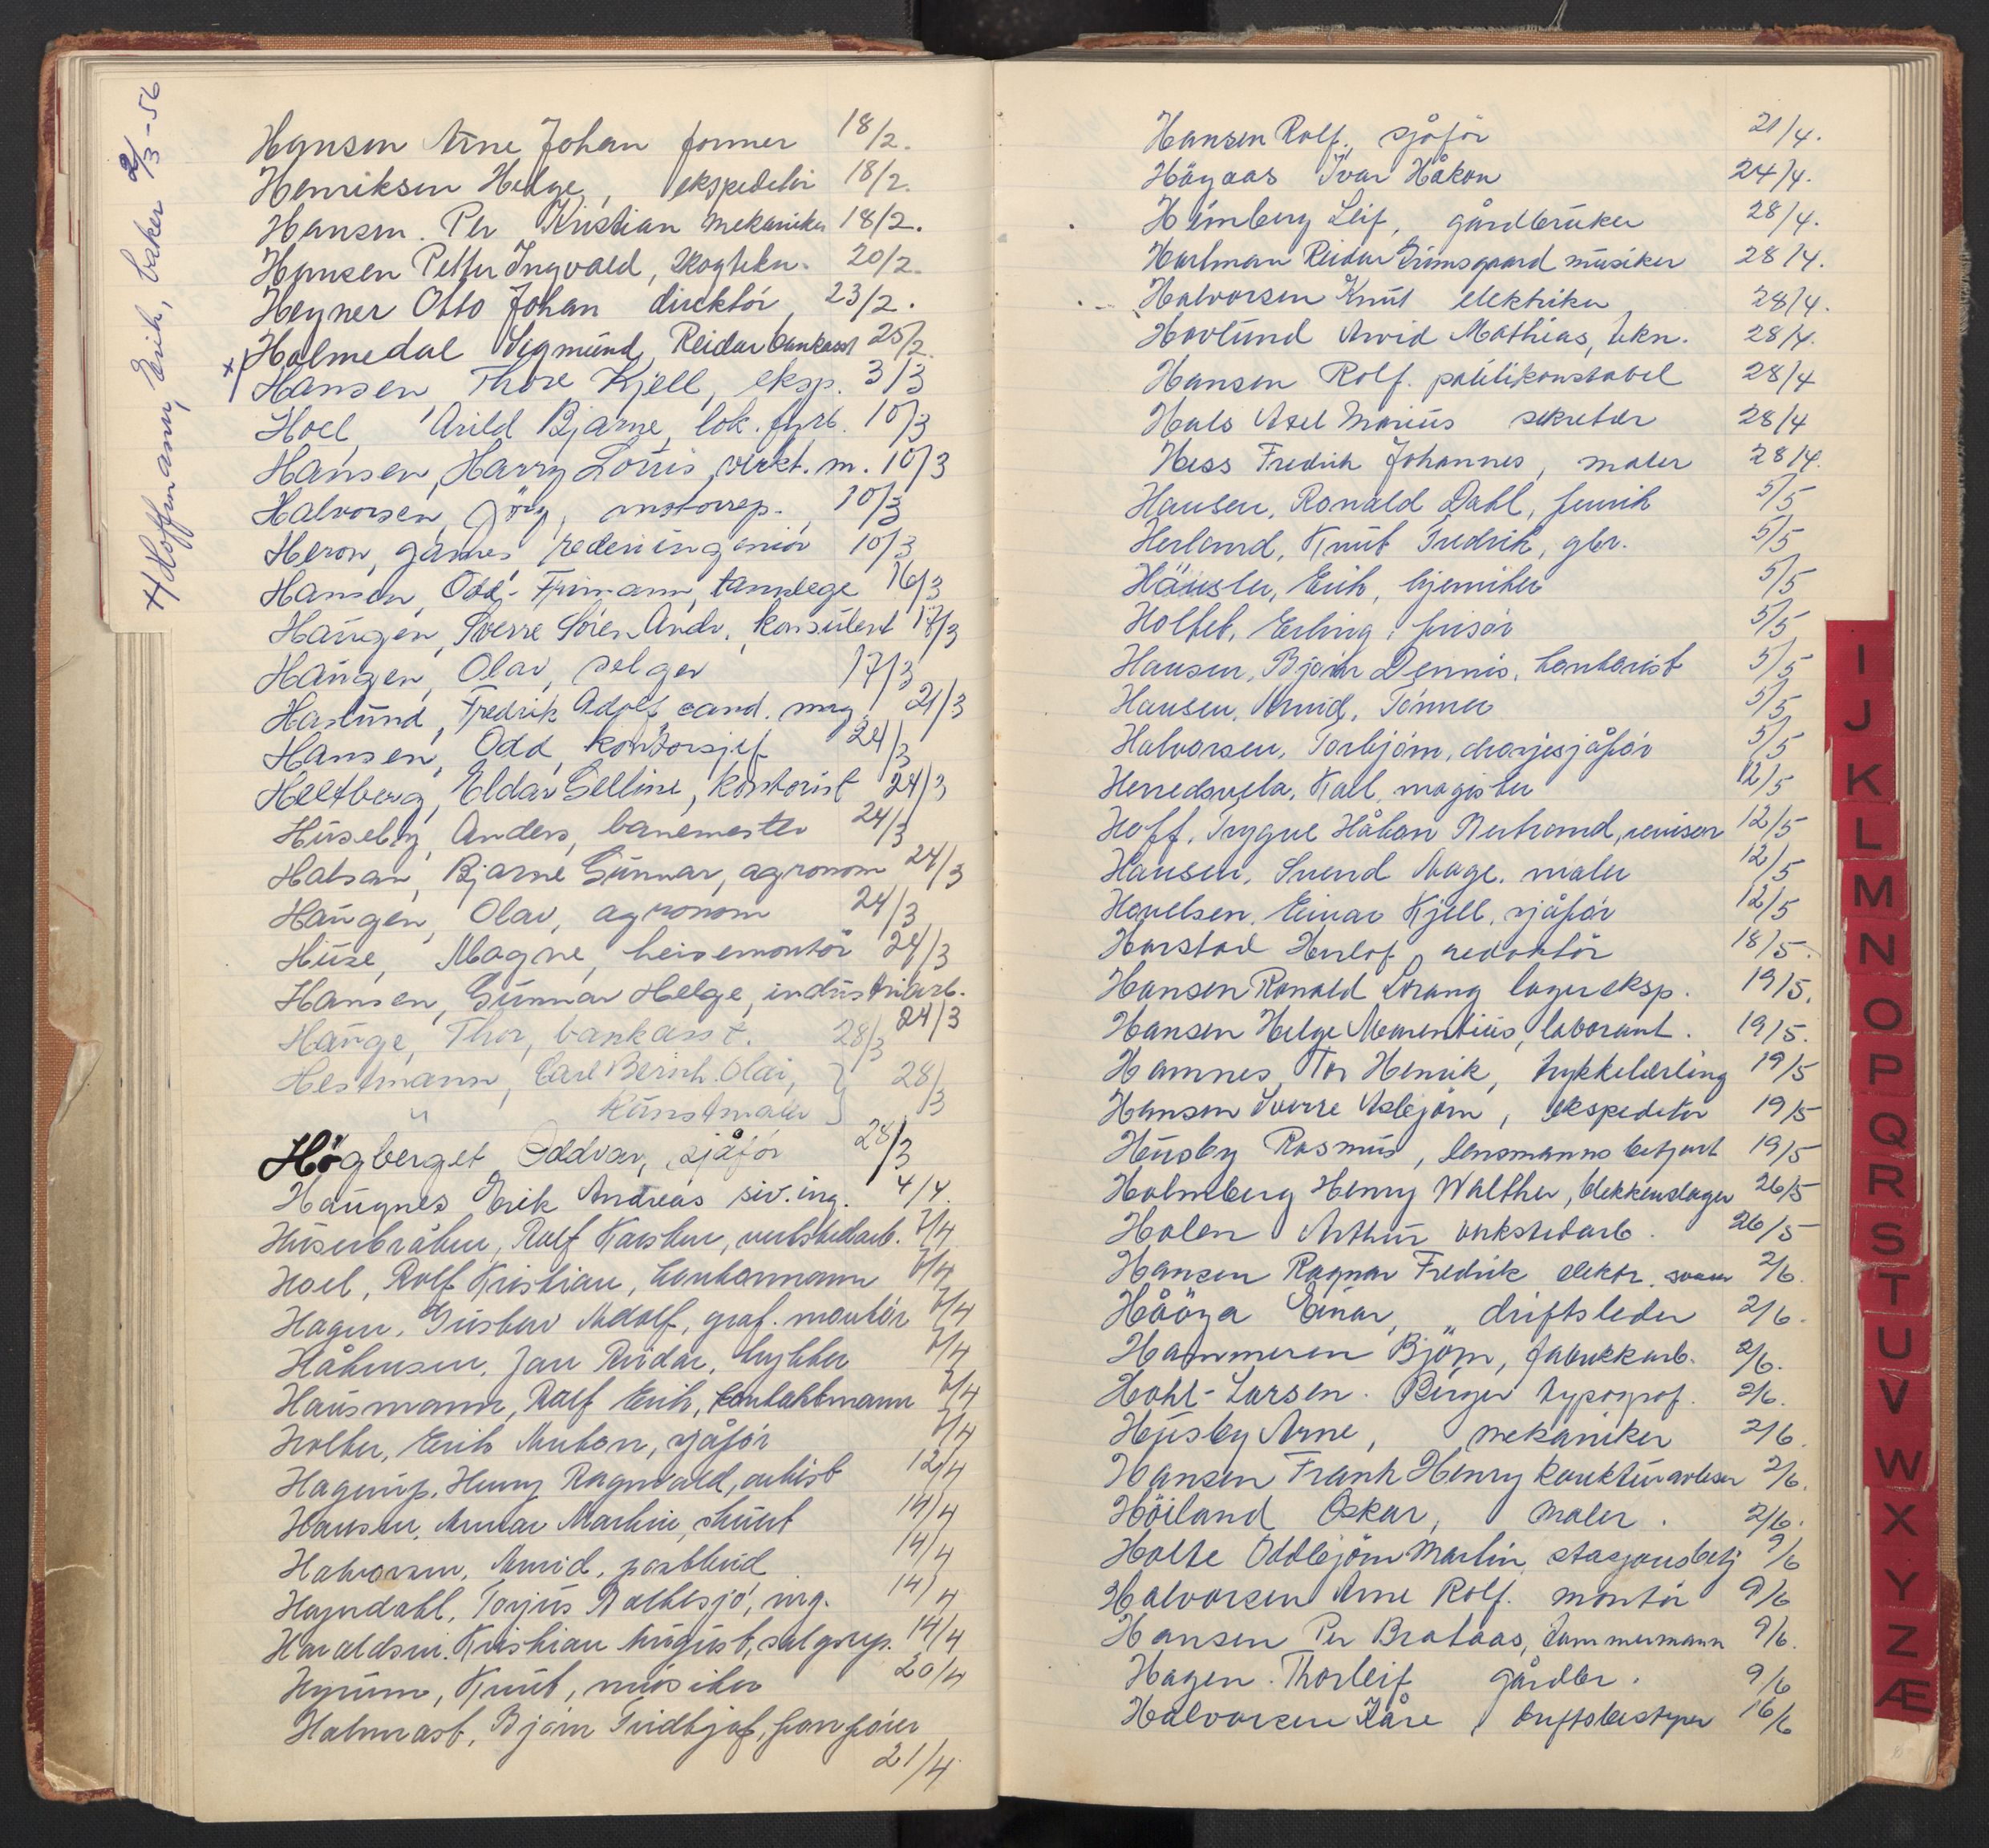 +/ Hoffmann, Erik, baker 2/3-56
Hansen Arne Johan former 18/2.
Henriksen Helge, ekspeditör 18/2.
Hansen. Per Kristian mekaniker 18/2.
Hansen Petter Ingvald, skogtekn. 20/2.
Heyner Otto Johan direktör 23/2.
+/ Holmedal Sigmund, Reidar bankasst 25/2.
Hansen, Thore Kjell, eksp. 3/3
Hoel, Arild Bjarne, lok. fyrb. 10/3
Hansen, Harry Louis, verkt. m. 10/3
Halvorsen, Jörg, motorrep. 10/3
Heron, James, rederiingeniör 10/3
Hansen, Odd-Frimann, tannlege 16/3
Haugen, Sverre Sören Andr., konsulent 17/3
Haugen, Olav, selger 17/3
Haslund, Fredrik Adolf, cand. mag. 21/3
Hansen, Odd, kontorsjef 24/3
Heltberg, Eldar Selline, kontorist 24/3
Huseby, Anders, banemester 24/3
Halsan, Bjarne Gunnar, agronom 24/3
Haugen, Olav, agronom 24/3
Huse, Magne, heisemontör 24/3
Hansen, Gunnar Helge, industriarb.
24/3
Hauge, Thor, bankasst. 28/3
Hestmann, Carl Bernh. Olai, } 28/3
" kunstmaler }
Högberget Oddvar, sjåför 28/3
Haugnes Erik Andreas siv.ing. 4/4.
Huserbråten, Rolf Karsten, verkstedarb. 7/4
Hoel, Rolf Kristian, kontormann 7/4
Hagen, Gustav Adolf, graf. montör 7/4
Håkensen, Jan Reidar, trykker 7/4
Hausmann, Ralf Erik, kontaktmann 7/4
Holter, Erik Anton, sjåför 7/4
Hagerup, Henry Ragnvald, artist 12/4
Hansen, Annar Martin, stuert 14/4
Halvorsen, Arvid, postbud 14/4
Høyndahl, Torjus, ing. 14/4
Haraldsen. Kristian August, salgsrep. 14/4
Hyrum, Knut, musiker 20/4
Halmrast, Björn Fridtjof, fanför
21/4
Hansen Rolf., sjåför 21/4.
Högaas Ivar Håkon 24/4.
Heimberg Leif, gårdbruker 28/4.
Hartman Reidar Grimsgaard musiker 28/4.
Halvorsen Knut elektriker 28/4.
Hovlund Arvid Mathias, tekn. 28/4.
Hansen Rolf. politikonstabel 28/4
Hals Axel Marius sekretær 28/4
Hess Fredrik Johannes, maler 28/4.
Hansen, Ronald Dahl, fenrik 5/5
Herland, Knut Fredrik, gbr. 5/5
Häusler, Erik, kjemiker 5/5
Holtet, Erling, frisör 5/5
Hansen, Björn Dennis, kontorist 5/5
Hansen, Arvid, Tömrer 5/5
Halvorsen, Torbjörn, drosjesjåför 5/5
Herredsvela, Karl, magister 12/5
Hoff, Trygve Håkon Bertrand, revisor 12/5
Hansen, Svend Aage. maler 12/5
Havelsen, Einar Kjell, sjåför 12/5
Harstad Herlof redaktör 18/5.
Hansen Ronald Lorang lagereksp. 19/5.
Hansen Helge Marentius, laborant. 19/5.
Hamnes, Tor Henrik, trykkelærling 19/5
Hansen Sverre Asbjörn, ekspeditör 19/5
Husby Rasmus, lensmannsbetjent 19/5
Holmberg Henry Walther, blekkenslager 26/5
Holen Arthur verkstedarb. 26/5
Hansen Ragnar Fredrik elektr. svenn 2/6.
Hååga Einar, driftsleder 2/6.
Hammeren Björn, fabrikkarb. 2/6.
Hohl-Larsen. Birger typograf. 2/6.
Husby Arne, mekaniker 2/6.
Hansen Frank Henry korrekturavleser 2/6.
Höiland Oskar, maler. 2/6.
Holte Oddbjörn Martin, stasjonsbetj 9/6
Halvorsen Arne Rolf. montör 9/6
Hansen Per Brataas, tømmermann 9/6.
Hagen. Thorleif gårdbr. 9/6
Halvorsen Kåre, driftsbestyrer 16/6
I
J
K
L
M
N
O
P
Q
R
S
T
U
V
W
X
Y
Z
Æ